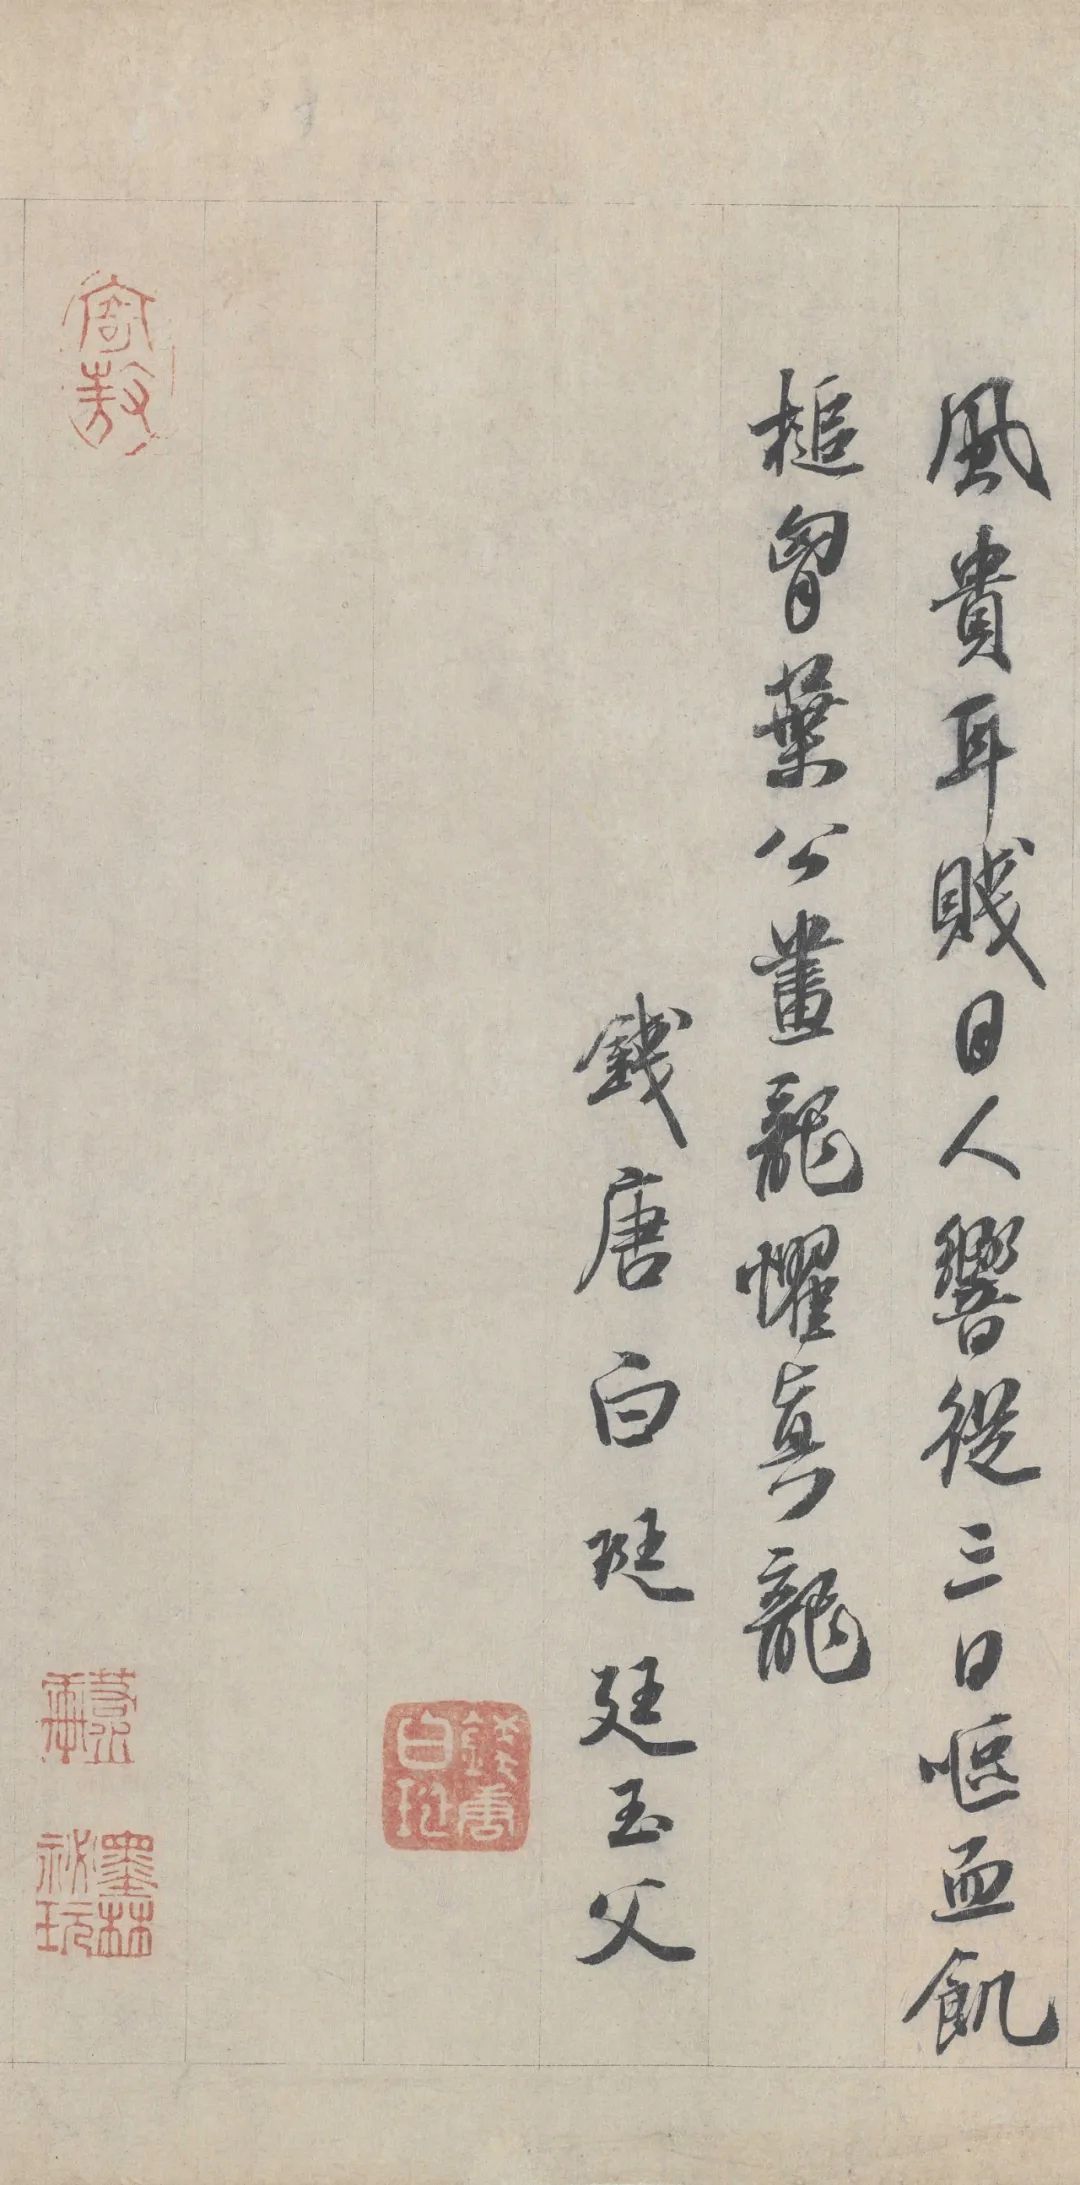 風貴耳賤目人響從三日嘔血飢
槌胷葉公畫龍懼眞龍
錢唐白珽廷玉父
錢唐白珽
墨林祕玩